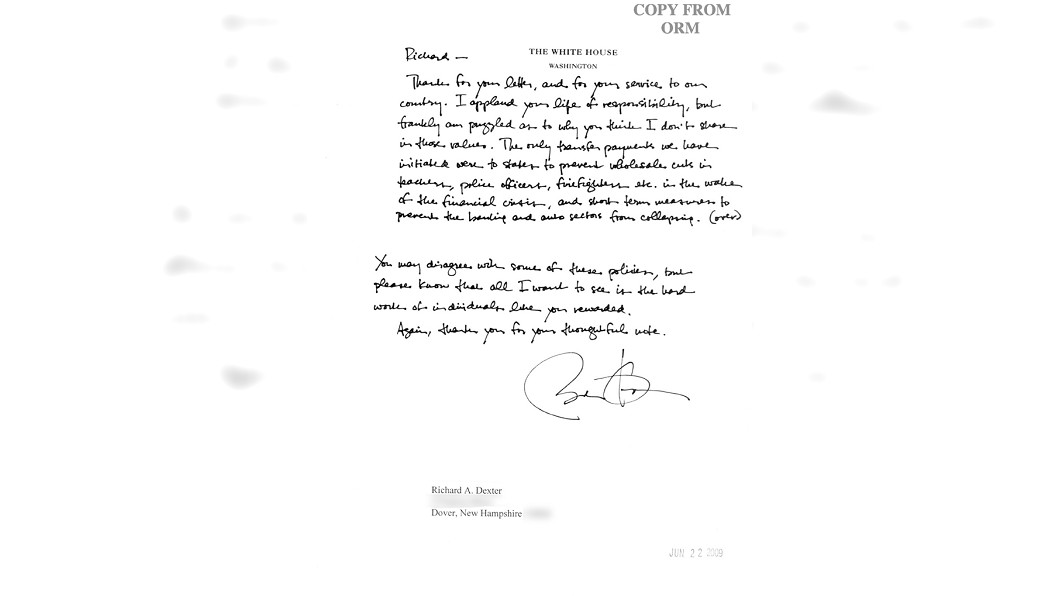 COPY FROM
ORM
THE WHITE HOUSE
WASHINGTON
Richard —
Thanks for your letter, and for your service to our
country. I applaud your life of responsibility, but
frankly am puzzled as to why you think I don't share
in those values. The only transfer payments we have
initiated were to states to prevent wholesale cuts in
teachers, police officers, firefighters etc. in the wake
of the financial crisis, and short term measures to
prevent the banking and auto sectors from collapsing. (over)
You may disagree with some of these policies, but
please know that all I want to see is the hard
work of individuals like you rewarded.
Again, thank you for your thoughtful note.
Richard A. Dexter
Dover, New Hampshire
JUN 22 2009